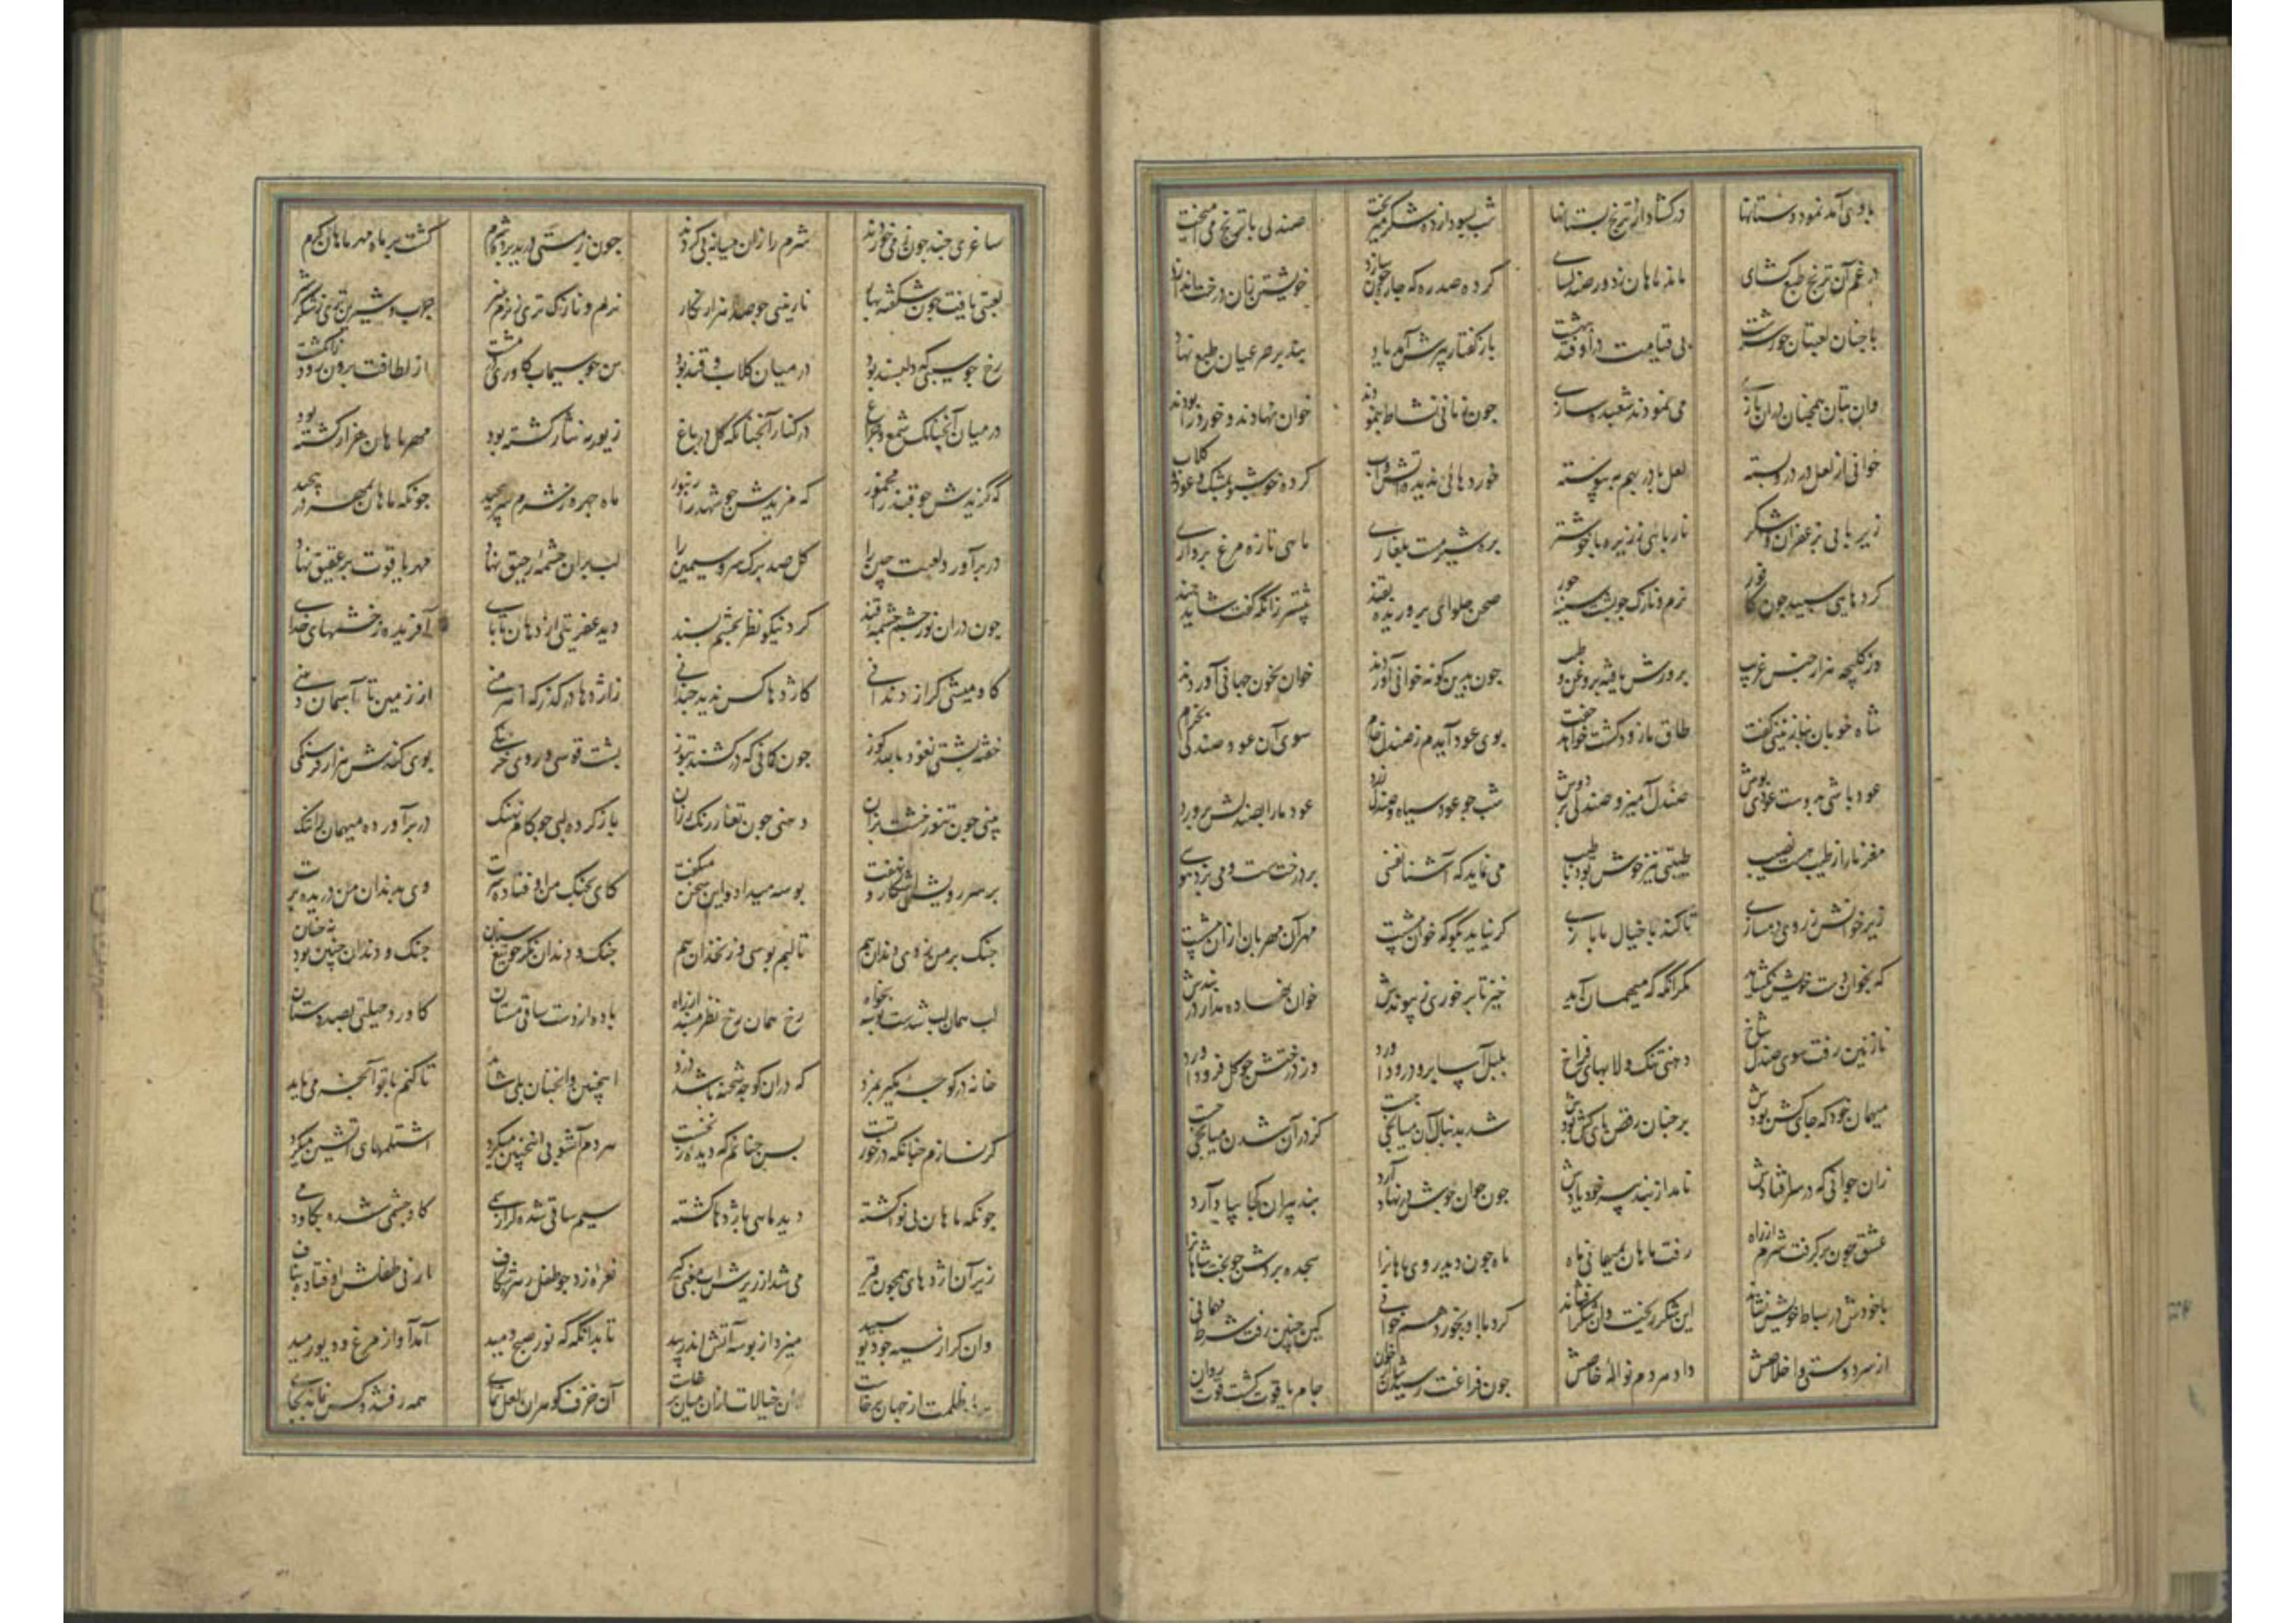 باد می آمد نمود دستانها درکشاد از ترنج بستانها شب بسودا زده شکر میریخت صندلی با ترنج می آمیخت
در غم آن ترنج طبع کشای ماند ماهان زدور صندل سای کرده صدره که جاره جون سازد خویشتن زان درخت اندازد
با جنان لعبتان حور سرشت بی قیامت درا وفتد ببهشت باز کفتار پیرش آمد یاد بند بر صرعیان طبع نهاد
وان بتان همچنان دران بازی می نمودند شعبده سازی جون زمانی نشاط بنمودند خوان نهادند وخورد را بودند
خوانی از لعل ودر درو بسته لعل با در بهم به پیوسته خوردهائی ندیده آتش وآب کرده خوشبو بمشک وعود وکلاب
زیر بائی بزعفران وشکر نار بائی ززیره با خوشتر بره شیر مست بلغاری ماهی تازه مرغ پرواری
کردهایی سپید جون کافور نرم ونازک جو پشت وسینه حور صحن حلوای پروریده بقند پیشتر زانکه کفت شاید چند
وز کلیچه هزار جنس غریب پرورش یافته بروغن وطیب جون بدین کونه خوانی آوردند خوان مخوان جهانی آوردند
شاه خوبان بنازنینی کفت طاق ما زود کشت خواهد جفت بوی عود آیدم زصندل خام سوی آن عود وصندلی بخرام
عود باشی به وست عودی پوش صندل آمیز وصندلی بر دوش شب جو عود سیاه وصندل زرد عود ما را بصندلش پرورد
مغز ما را زطیب هست نصیب طیبتی نیز خوش بود با طیب می نماید که آشنا نفسی بر درخت ست ومی پزد هوسی
زیر خوانش زروی دمسازی تا کند با خیال ما بازی کر نیاید بکو که خوان پیشت مهر آن مهربان ازان پیشت
که بخوان دست خویش نکشاید مکر آنکه که میهمان آید خیز تا برخوری زپیوندش خوان نهاده مدار در بندش
نازنین رفت سوی صندل شاخ دهنی تنک ولابهای فراخ بلبل آسا برو درود آورد وز درختش جو کل فرود آورد
میهمان خود که جای کش بودش بر جنان رقص پای خوش بودش شد بدنبال آن میانجی جست کز در آن شدن میانجی جست
زان جوانی که در سر افتادش نامد از بند پیر خود یادش جون جوان جوش در نهاد آرد بند پیران کجا بیاد آرد
عشق جون برکرفت شرم از راه رفت ماهان بمیهمانی ماه ماه جون دید روی ماهان را سجده بردش جو تخت شاهان را
با خودش در بساط خویش نشاند این شکر ریخت وان شکر افشاند کرد با او بخورد هم خوانی کین چنین رفت شرط مهمانی
از سر دوستی واخلاصش داد هر دم نواله خاصش جون فراغت رسیدشان از خوان جام یاقوت کشت قوت روان
ساغری چند جون زمی خوردند شرم را زان میانه پی کردند جون زمستی درید پرده شرم کشت بر ماه مهر ماهان کرم
لعبتی یافت جون شکفته بهار نازنینی جو صد هزار نکار نرم ونازک تری زنرم پنیر جرب وشیرین تری زشکر وشیر
رخ جو سیبی که دلپسند بود در میان کلاب وقند بود تن جو سیماب کاوری در مشت از لطافت برون رود زانکشت
در کنار آنچنانکه کل در باغ در میان آنچنانکه شمع وچراغ زیور مه نثار کشته بود مهر ماهان هزار کشته بود
که کزیدش جو قند را مخمور که مزیدش جو شهد را زنبور ماه چهره زشرم سر پیچید جونکه ماهان بمهر درپیچید
در بر آورد لعبت چین را کل صد برک سرو سیمین را لب بران چشمه رحیق نهاد مهر یاقوت بر عقیق نهاد
جون دران نور چشم وچشمه قند کرد نیکو نظر بچشم پسند دید عفریتی از دهان تا پای آفریده زخشمهای خدای
کاومیشی کراز دندانی کاژدها کس ندید جندانی زاژدها درکذر که آهرمنی از زمین تا بآسمان دهنی
خفته پشتی نغوذ بالله کوز جون کمانی که درکشند بتوز پشت قوسی وروی خرچنکی بوی کندش هزار فرسنکی
بینی جون تنور خشت پزان دهنی جون تغار رنک رزان باز کرده لبی جو کام نهنک در بر آورده میهمان را تنک
بر سر رویش آشکار ونهفت بوسه میداد واین سخن میکفت کای بچنک من اوفتاده سرت وی بدندان من دریده برت
چنک بر من زدی ودندان هم تا لبم بوسی وزنخدان هم چنک ودندان نکر جو تیغ وسنان چنک ودندان چنین بود نه چنان
لب همان لب شدست بوسه بخواه رخ همان رخ نظر مبند از راه باده از دست ساقی مستان کاورد حیلتی بصد دستان
خانه در کوچه مکیر بمزد که دران کوچه شحنه باشد دزد اینچنین وانچنان بلی شاید تا کنم با تو آنچه می باید
کر نسازم چنانکه درخور تست پس چنانم که دیده ز نخست هر دم آشوبی اینچنین میکرد اشتلمهای آتشین میکرد
جونکه ماهان بی نوا کشته دید ماهی باژدها کشته سیم ساقی شده کراز سمی کاو چشمی شده بکاو دمی
زیر آن اژدهای همچون قیر می شد از زیرش آب معنی کیر نعره زد جو طفل زهره شکاف یا زنی طفلش اوفتاده بناف
وان کراز سیه جو دیو سپید میزد از بوسه آتش اندر بید تا بدانکه که نور صبح دمید آمد آواز مرغ ودیو رمید
پرده ظلمت از جهان برخاست وان خیالات ازان میان برخاست آن خزف کوهران لعل نمای همه رفتند وکس نماند بجای